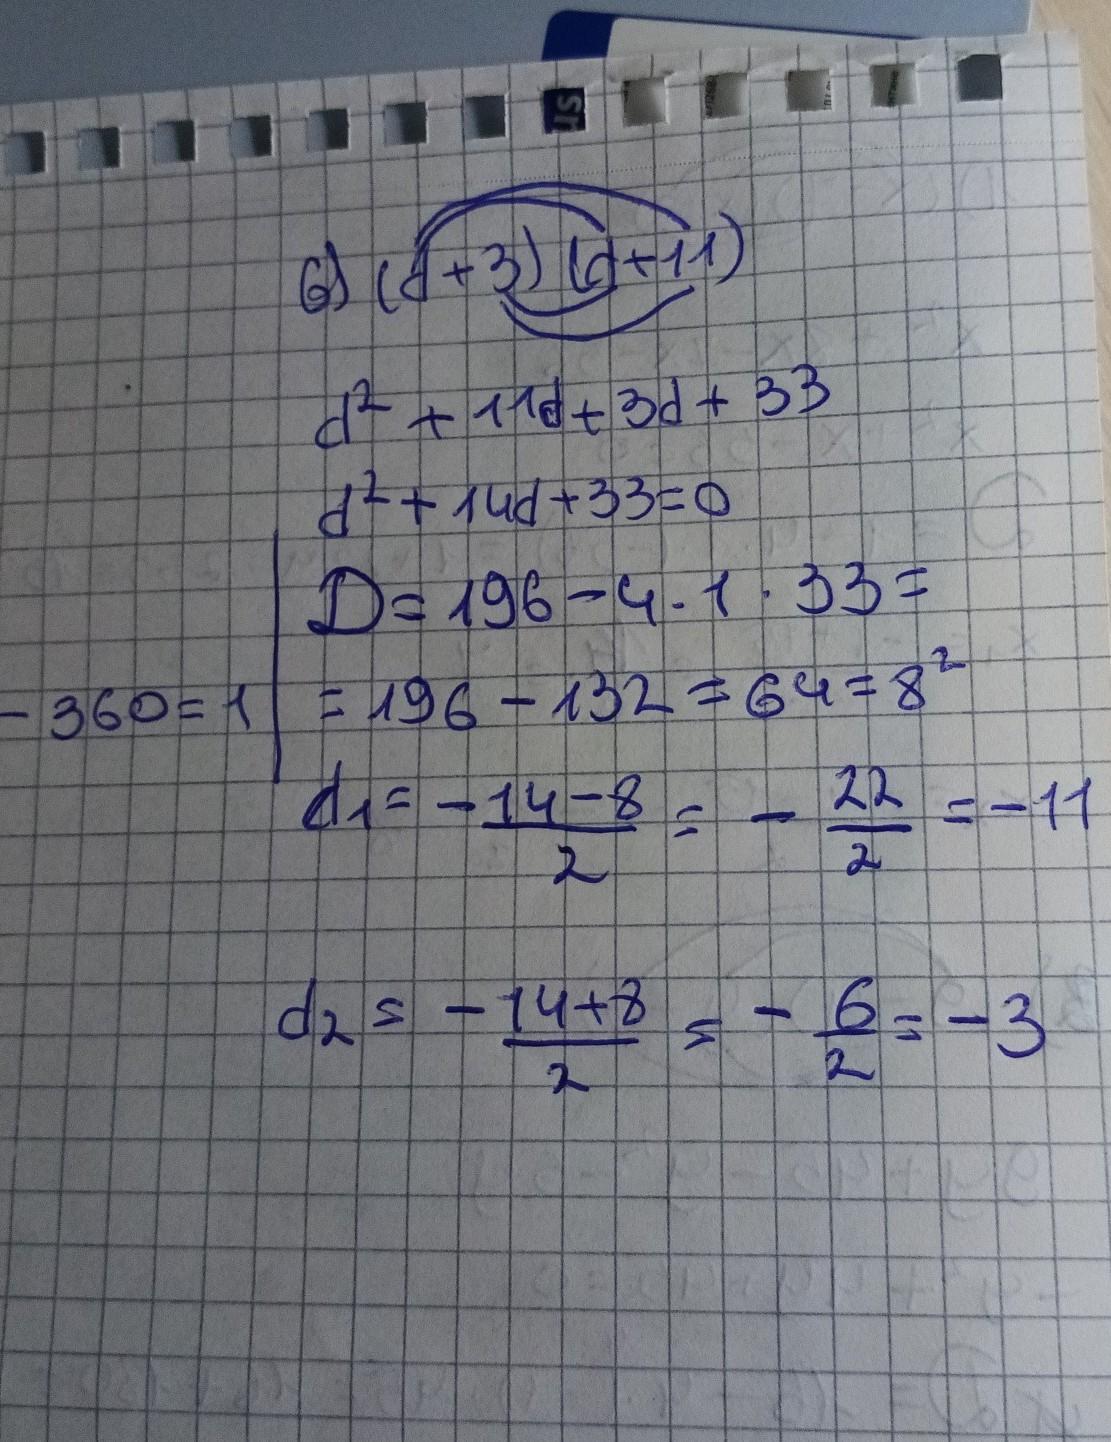 6) (d+3)(d+11)
d² + 11d + 3d + 33
d² + 14d + 33 = 0
D = 196 - 4 · 1 · 33 =
- 360 = 1
= 196 - 132 = 64 = 8²
d₁ = -\frac{14-8}{2} = -\frac{22}{2} = -11
d₂ = -\frac{14+8}{2} = -\frac{6}{2} = -3